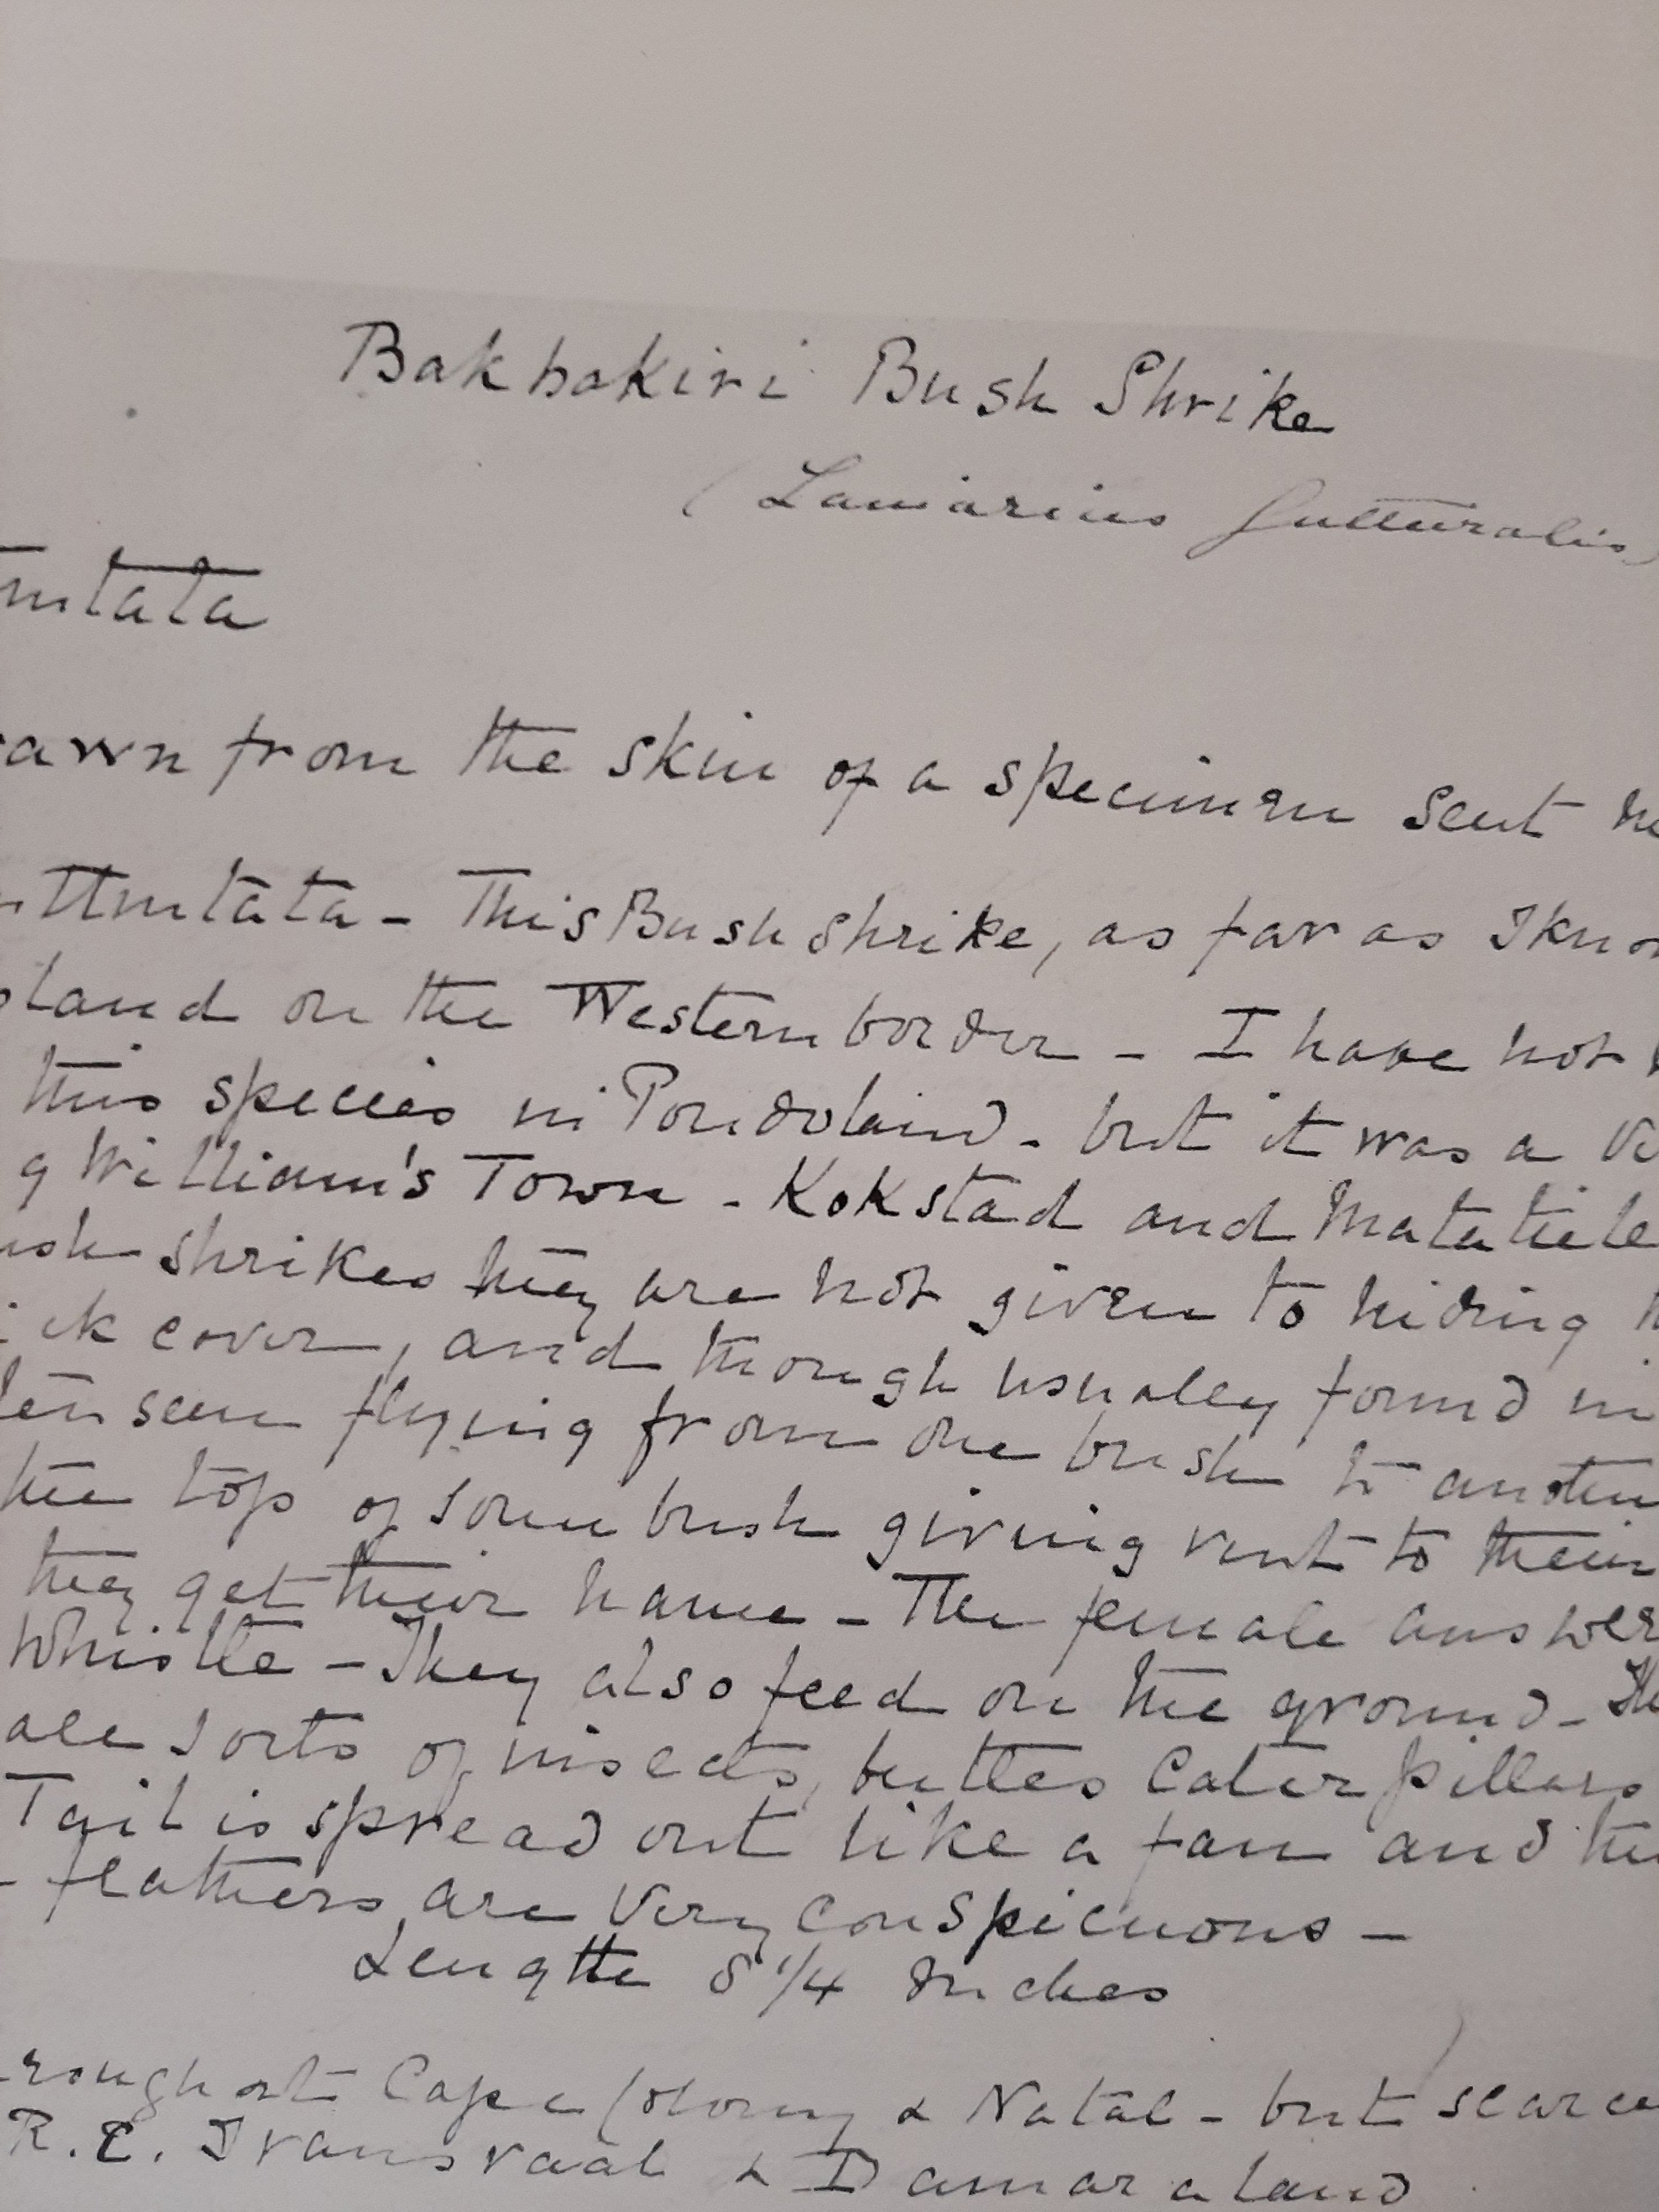 Bakbakiri Bush Shrike
(Laniarius gutturalis)
mtata
awn from the skin of a specimen sent
mtata - This Bush Shrike, as far as I know
land on the Western border - I have not
this species in Pondoland - but it was a
g William's Town - Kokstad and Matatiele
ush shrikes they are not given to hiding
ick cover, and though usually found in
ten seen flying from one bush to another
the top of some bush giving vent to their
they get their name - The female answer
whistle - They also feed on the ground - The
all sorts of insects, beetles Caterpillars
Tail is spread out like a fan and the
- feathers are very conspicuous -
Length 8 1/4 Inches
roughout Cape Colony & Natal - but scarce
R. E. Transvaal & Damaraland